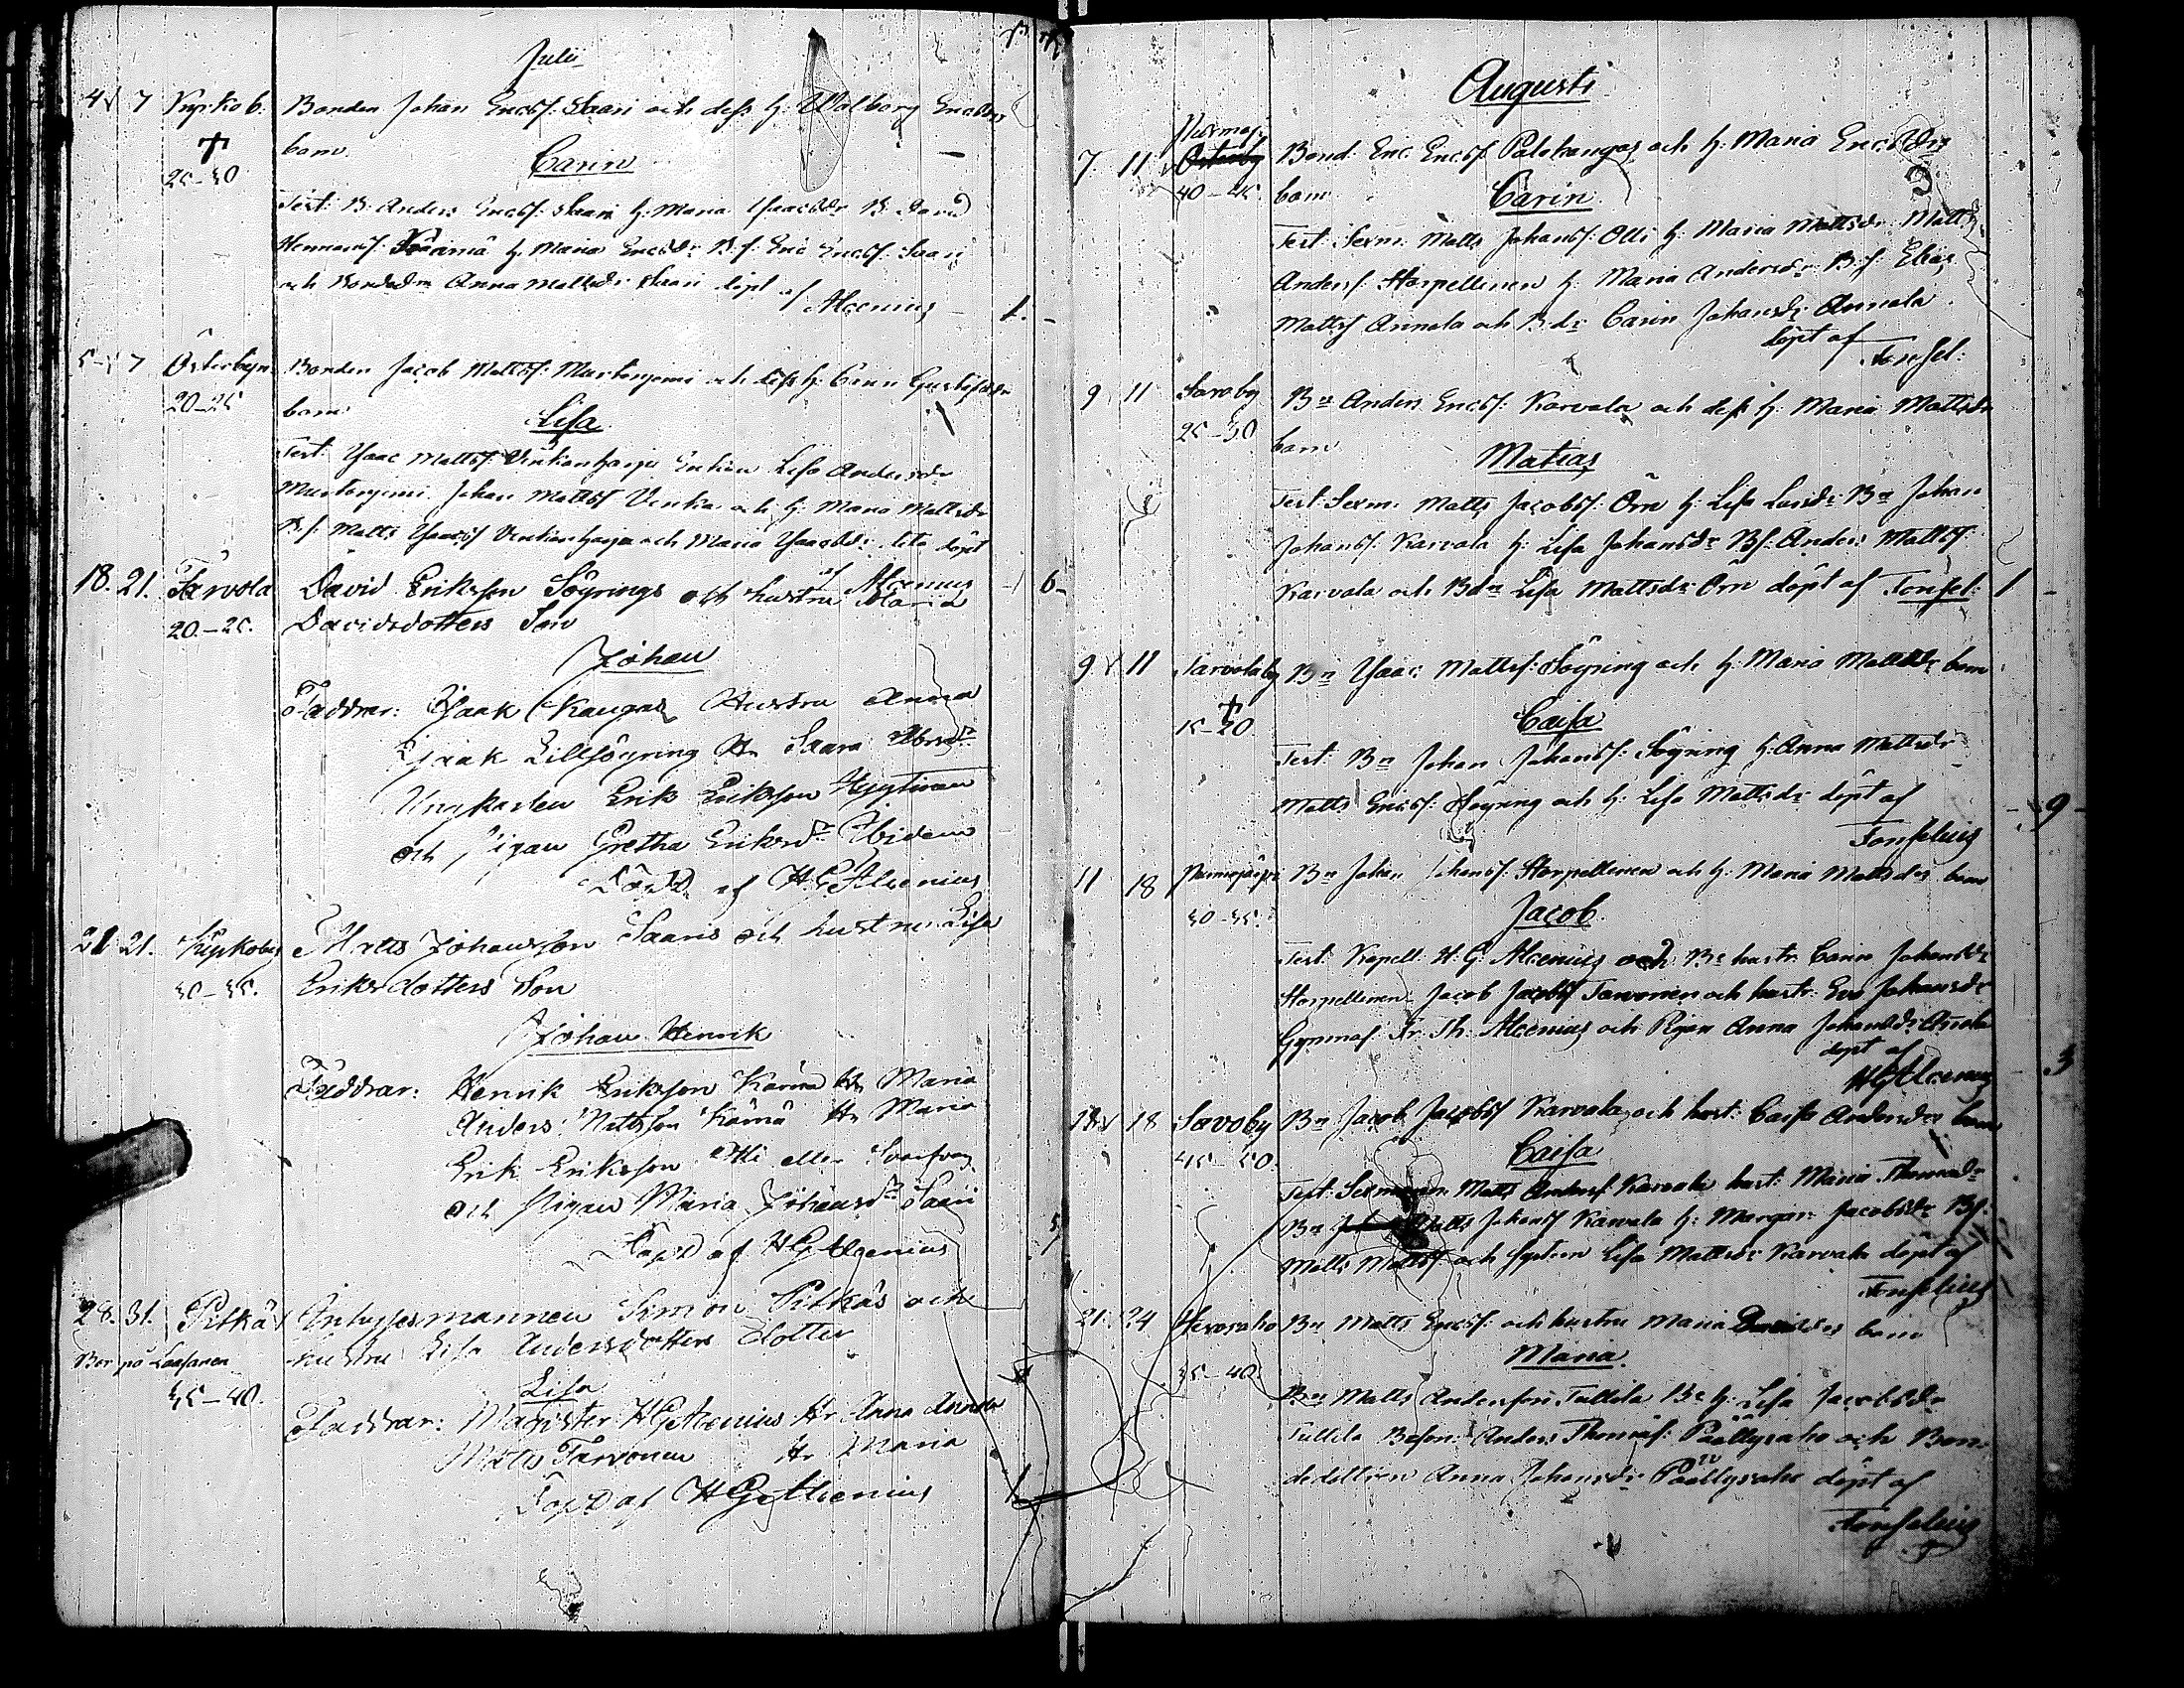 Julii
4 7 Kypko b. Bonden Johan Ericss: Saari och dess h: Walborg Ericsdrs
barn.
Carin
25-30
Test: B. Anders Ericss: Saari h: Maria Isaacsdr B. David
Hermanss: Kärnä h: Maria Ericsdr B.s: Eric Ericss: Saari
och Bondedn Anna Mattsdr Saari döpt af
Alcenius 1.
5 7 Österbyn Bonden Jacob Mattss: Murtoniemi och dess h: Carin Gustafsdr
20-25 barn:
Lisa
Test: Isaac Mattss: Enkan Lisa Andersdr
Murtoniemi Johan Mattss och h: Maria Mattsdr
B.s: Matts Isaacss och Maria Isaacsdr döpt
af Alcenius 6
18. 21. Tarvola David Eriksson Söyrings och hustru Maria
20-25. Davidsdotters Son
Johan
Faddrar: Isaak Kangas Hustru Anna
Isaak Lillsöyring Hr Saara
Ungkarlen Erik Eriksson
och Pigan Gretha Eriksdr Ibidem
Döpt af HGAlcenius
21 21. Kypkoby Matts Johansson Saaris och hustru Lisa
30-35. Eriksdotters Son
Johan Henrik
Faddrar: Henrik Eriksson Kärnä Hr Maria
Anders Mattsson Kärnä Hr Maria
Erik Eriksson Olli eller
och Pigan Maria Johansdr Saari
Döpt af HGAlcenius
28. 31. Pitkä Intugesmannen Simon Pitkäs och
Bor på Laasanen hustru Lisa Andersdotters dotter
35-40. Lisa
Faddrar: Magister HGAlcenius Hr Anna Annala
Matts Tarvonen Hr Maria
Döpt af HGAlcenius
Augusti
7. 11 Bond: Eric Ericss Palokangas och h: Maria Ericsdrs
40-45 barn
Carin
Test: Sexm. Matts Johanss: Olli h: Maria Mattsdr Matts
Anderss: Storpellinen h: Maria Andersdr B.s: Elias
Mattss Annala och B.dr Carin Johansdr Annala
döpt af
Fonsel:
9 11 Savoby Bn Anders Ericss: Karvala och dess h: Maria Mattsdr
25-30 barn
Matias
Test: Sexm. Matts Jacobss: Örn h: Lisa Larsdr Bn Johan
Johanss: Karvala h: Lisa Johansdr Bs: Anders Mattss:
Karvala och Bdn Lisa Mattsdr Örn döpt af Fonsel: 1
9 11 Tarvolaby Bn Isaac Mattss: Söyring och h: Maria Mattsdr barn
15-20 Caisa
Test: Bn Johan Johanss: Söyring h: Anna Mattsdr
Matts Ericss: Söyring och h: Lisa Mattsdr döpt af
Fonselius 9
11 18 Bn Johan Johanss: Storpellinen och h: Maria Mattsdrs barn
30-35. Jacob
Test: Kapell: H: G: Alcenius och Be hustr: Carin Johansdr
Storpellinen Jacob Jacobss Tarvonen och hustr: Eva Johansdr
Gymnas: Fr. Th: Alcenius och Pigan Anna Johansdr Annala
döpt af
HGAlcenius 3
13 18 Savoby Bn Jacob Jacobss Karvala och hust: Caisa Andersdrs barn
45-50. Caisa
Test: Sexmannen Matts Anderss Karvala hust: Maria Thomasdr
Bn Matts Johanss Karvala h: Margar: Jacobsdr Bs:
Matts Mattss och systern Lisa Mattsdr Karvala döpt af
Fonselius
21. 24 Bn Matts Ericss: och hustru Maria Davidsdrs barn
35-40. Maria
Bn Matts Andersson Tullila Be h: Lisa Jacobsdr
Tullila Beson: Anders Thomass: Päällysaho och Bon-
dedottren Anna Johansdr Päällysaho döpt af
Fonselius